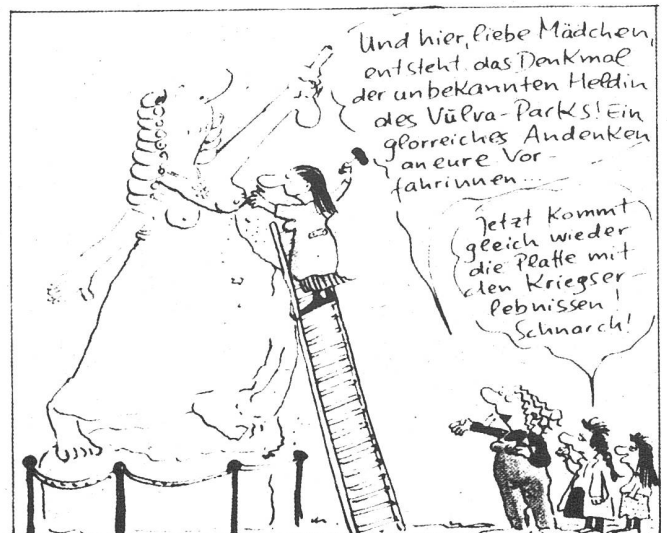 Und hier, liebe Mädchen,
entsteht das Denkmal
der unbekannten Heldin
des Vulva-Parks! Ein
glorreiches Andenken
an eure Vor-
fahrinnen...
Jetzt kommt
gleich wieder
die Platte mit
den Kriegser-
lebnissen!
Schnarch!